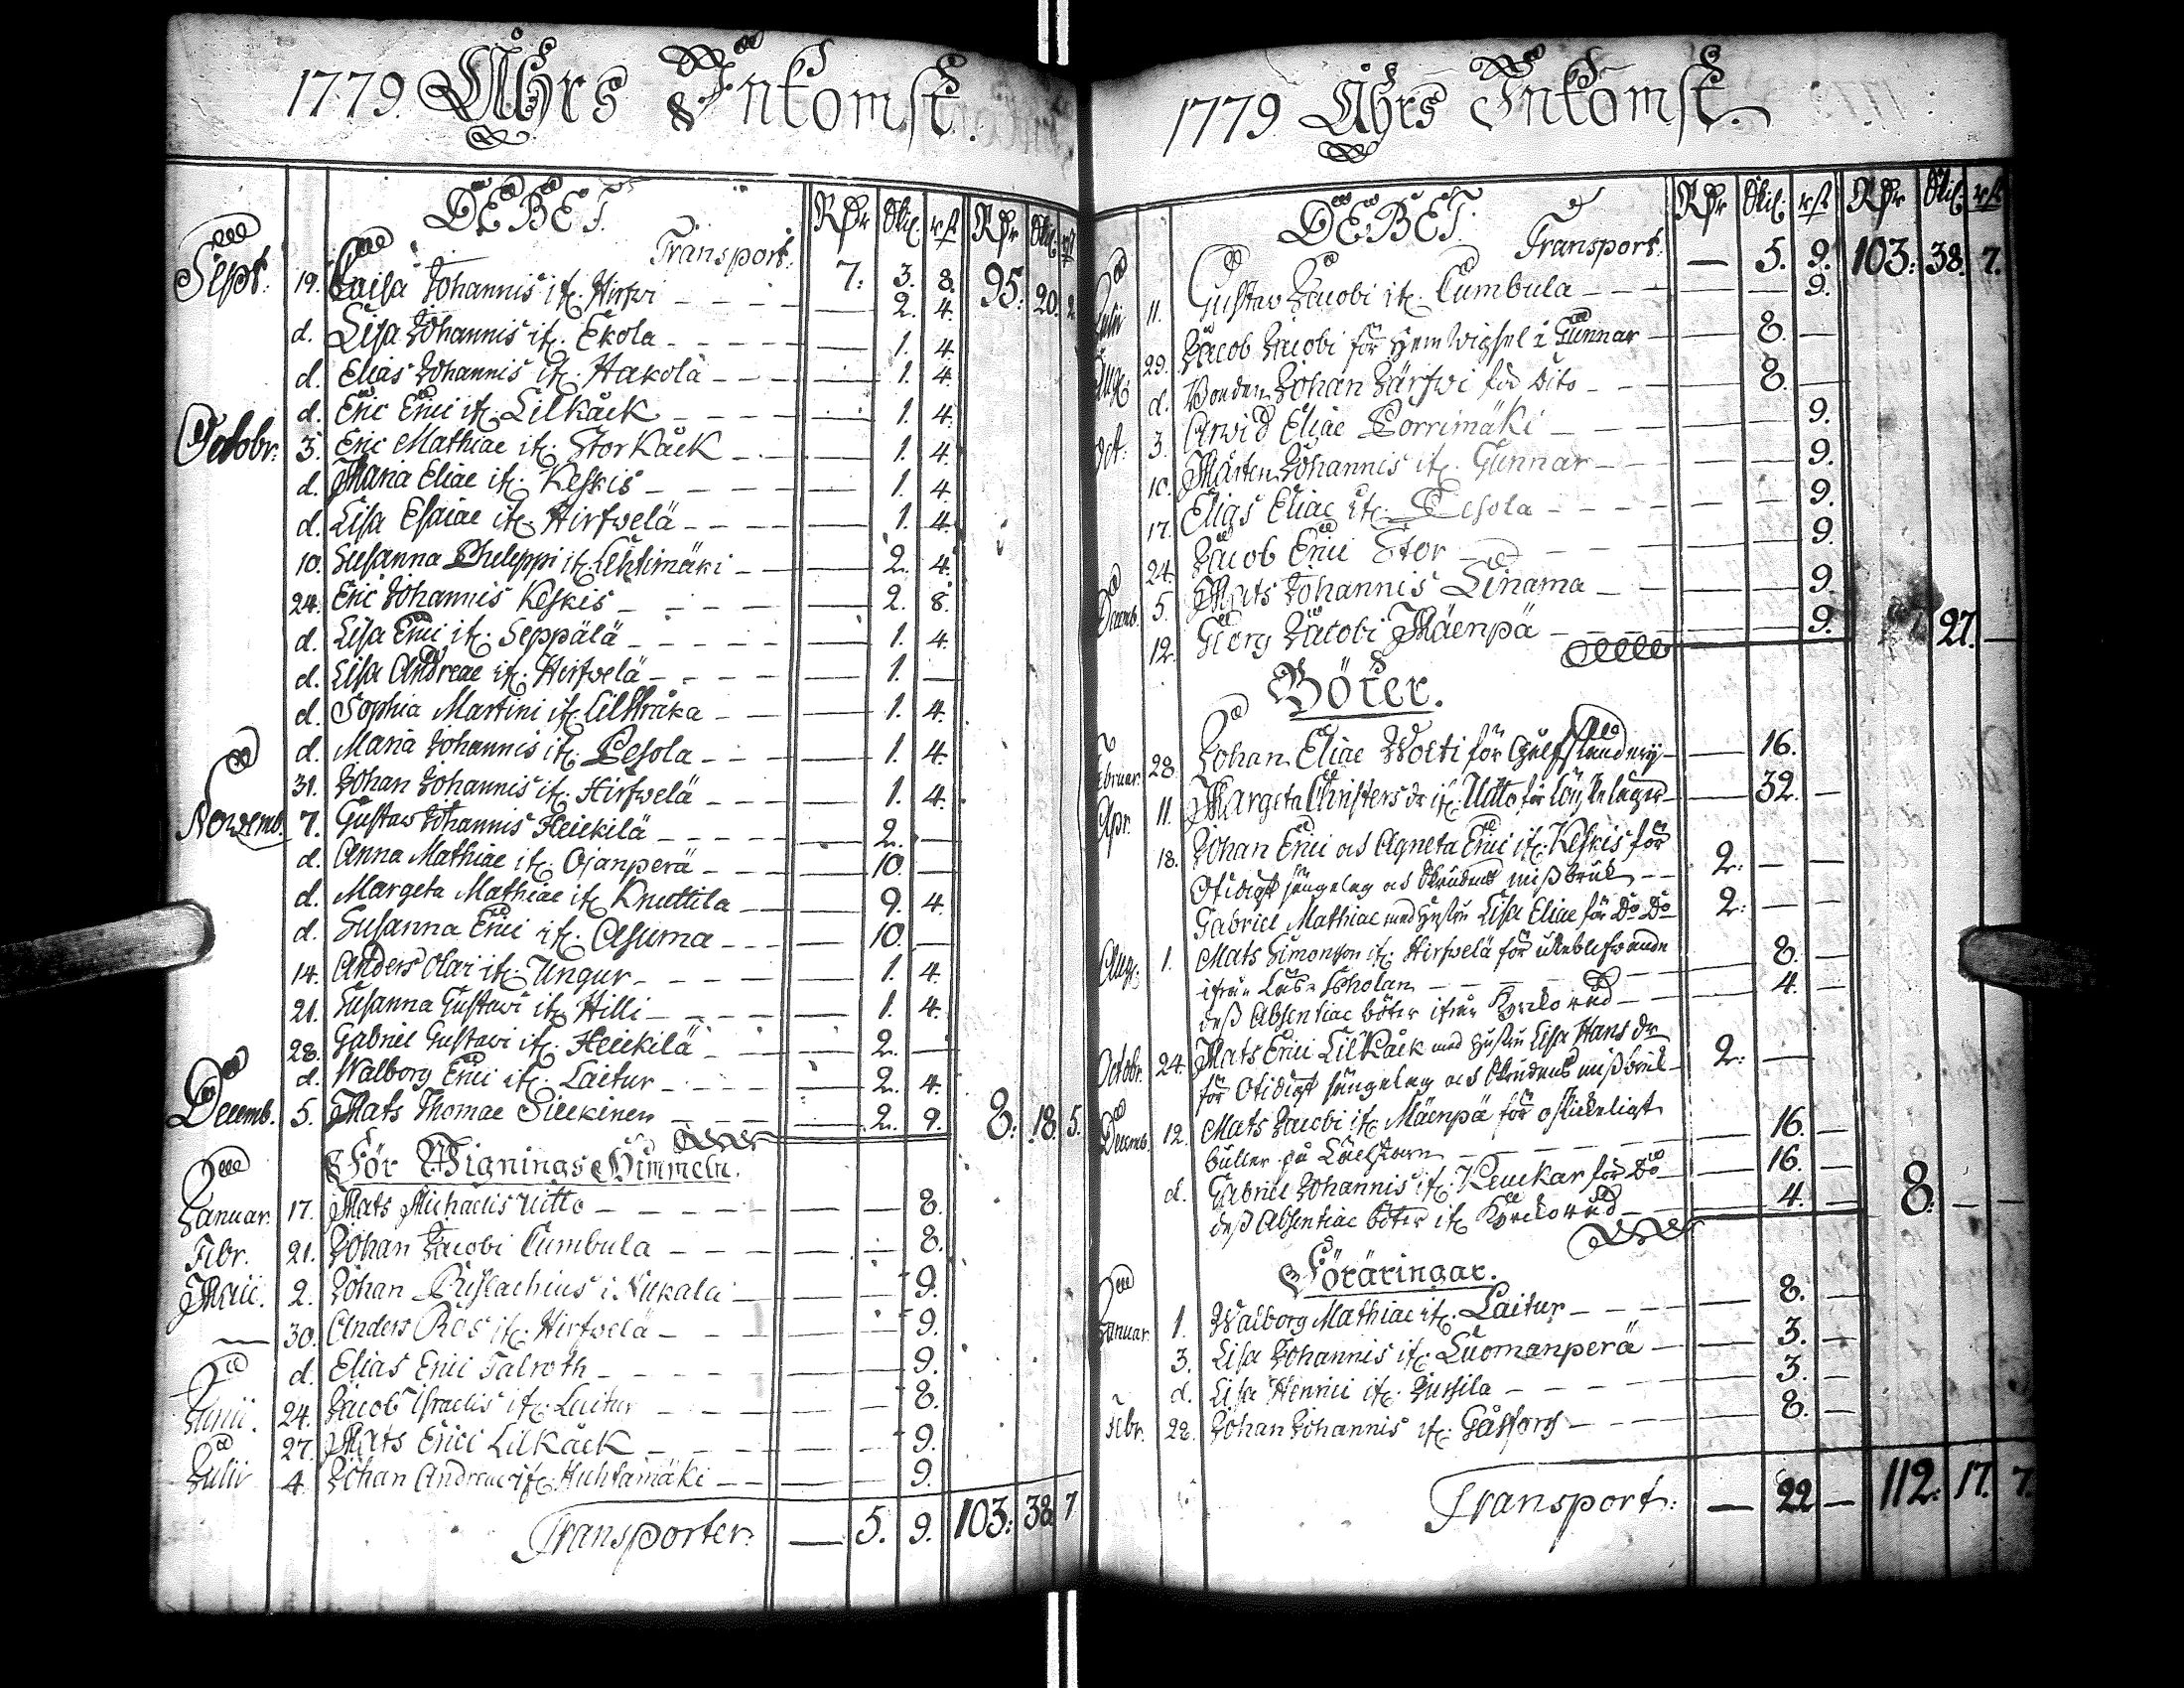 1779. Åhrs Inkomst.
DEBET. RDr Skil. rst RDr Skil. rst
Transport: 7: 3. 8. 95: 20. 2
Sept. 19. Caisa Johannis if. Hirfwi — 2. 4.
d. Lisa Johannis if. Ekola — 1. 4.
d. Elias Johannis if. Hakola — 1. 4.
d. Eric Erici if. Lilkåck — 1. 4.
Octobr: 3. Eric Mathiae if. Storkåck — 1. 4.
d. Maria Eliae if. Keskis — 1. 4.
d. Lisa Esaiae if. Hirfwelä — 1. 4.
10. Susanna Phileppi if. Lehtimäki — 2. 4.
24. Eric Johannis Keskis — 2. 8.
d. Lisa Erici if. Seppälä — 1. 4.
d. Lisa Andreae if. Hirfwelä — 1. —
d. Sophia Martini if. — 1. 4.
d. Maria Johannis if. Pesola — 1. 4.
31. Johan Johannis if. Hirfwelä — 1. 4.
Novemb. 7. Gustav Johannis Heickilä — 2. —
d. Anna Mathiae if. Ojanperä — 10. —
d. Margeta Mathiae if. Knuttila — 9. 4.
d. Susanna Erici if. Asuma — 10. —
14. Anders Olai if. Ungur — 1. 4.
21. Susanna Gustavi if. Hilli — 1. 4.
28. Gabriel Gustavi if. Heickilä — 2. —
d. Walborg Erici if. Laitur — 2. 4.
Decemb. 5. Mats Thomae Sickinen — 2. 9. 8: 18. 5.
För Wignings Himmeln.
Januar. 17. Mats Michaelis Uitto — — 8.
Febr. 21. Johan Jacobi Cumbula — — 8.
Maii. 2. Johan i — — 9.
— 30. Anders Ros if. Hirfwelä — — 9.
d. Elias Erici Talroth — — 9.
Junii. 24. Jacob Israelis if. Laitur — — 8.
27. Mats Erici Lilkåck — — 9.
Julii 4. Johan Andreae if. Huhtamäki — — 9.
Transporter: — 5. 9. 103: 38. 7
1779 Åhrs Inkomst.
DEBET. RDr Skil. rst RDr Skil. rst
Transport: — 5. 9. 103: 38. 7.
Julii 11. Gustav Jacobi if. Cumbula — — 9.
Aug. 29. Jacob Jacobi för Hem Wigsel i Gunnar — 8. —
d. Bonden Johan Järfwi för Dito — 8. —
Oct: 3. Arwid Eliae Porrimäki — — 9.
10. Mårten Johannis if. Gunnar — — 9.
17. Elias Eliae if. Pesola — — 9.
24. Jacob Erici Stor — — 9.
Decemb. 5. Mats Johannis Linama — — 9.
12. Georg Jacobi Mäenpä — — 9. 1. 27. —
Böter.
Februar. 28. Johan Eliae Wolti för — 16.
Apr. 11. Margeta Christers dr if. Uitto för Lönskeläger — 32. —
18. Johan Erici och Agneta Erici if. Keskis för
Otidigt sängelag och Skrudens missbruk — 2: — —
Gabriel Mathiae med Hustru Lisa Eliae för Do Do 2: — —
Aug. 1. Mats Simonson if. Hirfwelä för uteblifwande
ifrån Läse Scholan — 8. —
dess Absentiae böter ifrån Kyrckoråd — 4. —
Octobr. 24. Mats Erici Lilkåck med Hustru Lisa Hans dr
för Otidigt sängelag och Skrudens missbruk 2: —
Decemb. 12. Mats Jacobi if. Mäenpä för oskickeligt
buller på Läcktaren — 16. —
d. Gabriel Johannis if. Keuckar för Do — 16. —
dess Absentiae böter if. Kyrckoråd — 4. — 8: — —
Föräringar.
Januar. 1. Walborg Mathiae if. Laitur — 8. —
3. Lisa Johannis if. Luomanperä — 3. —
d. Lisa Henrici if. Jussila — 3. —
Febr. 28. Johan Johannis if. Gåsfors — 8. —
Transport: — 22 — 112: 17. 7.